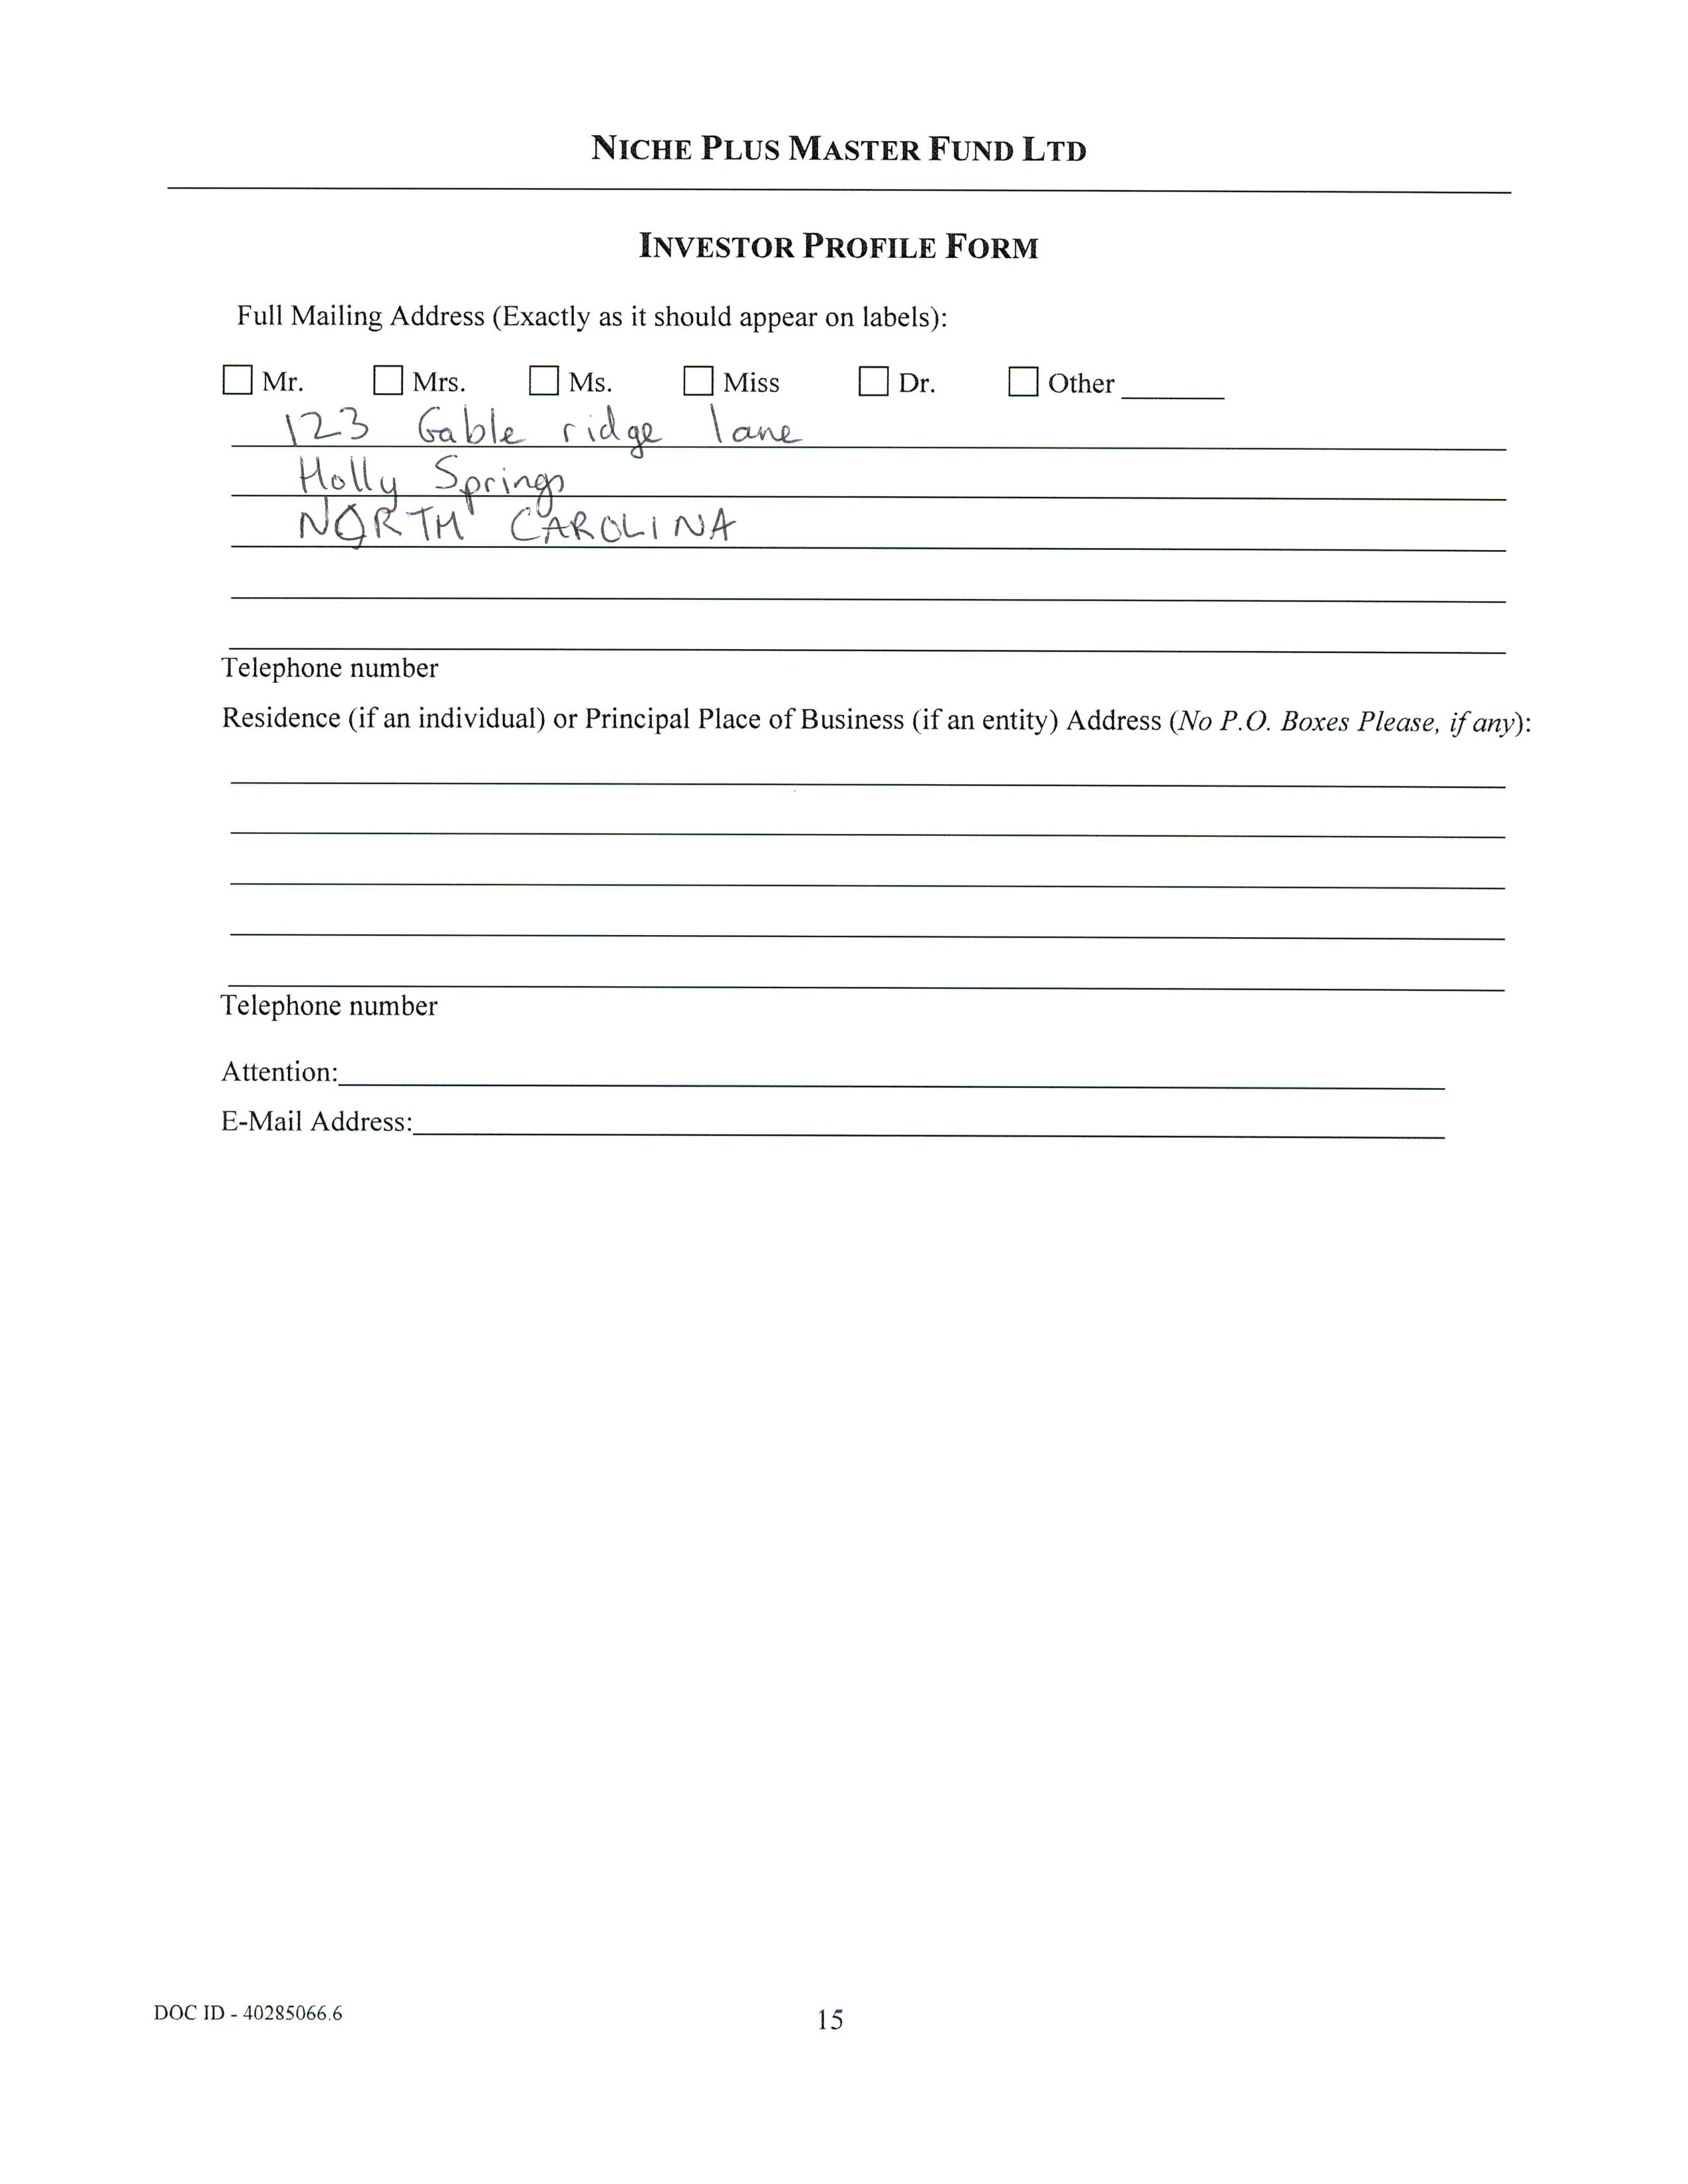 NICHE PLUS MASTER FUND LTD
INVESTOR PROFILE FORM
Full Mailing Address (Exactly as it should appear on labels):
Mr. Mrs. Ms. Miss Dr. Other
123 Gable ridge lane
Holly Springs
NORTH CAROLINA
Telephone number
Residence (if an individual) or Principal Place of Business (if an entity) Address (No P.O. Boxes Please, if any):
Telephone number
Attention:
E-Mail Address:
DOC ID - 40285066.6
15